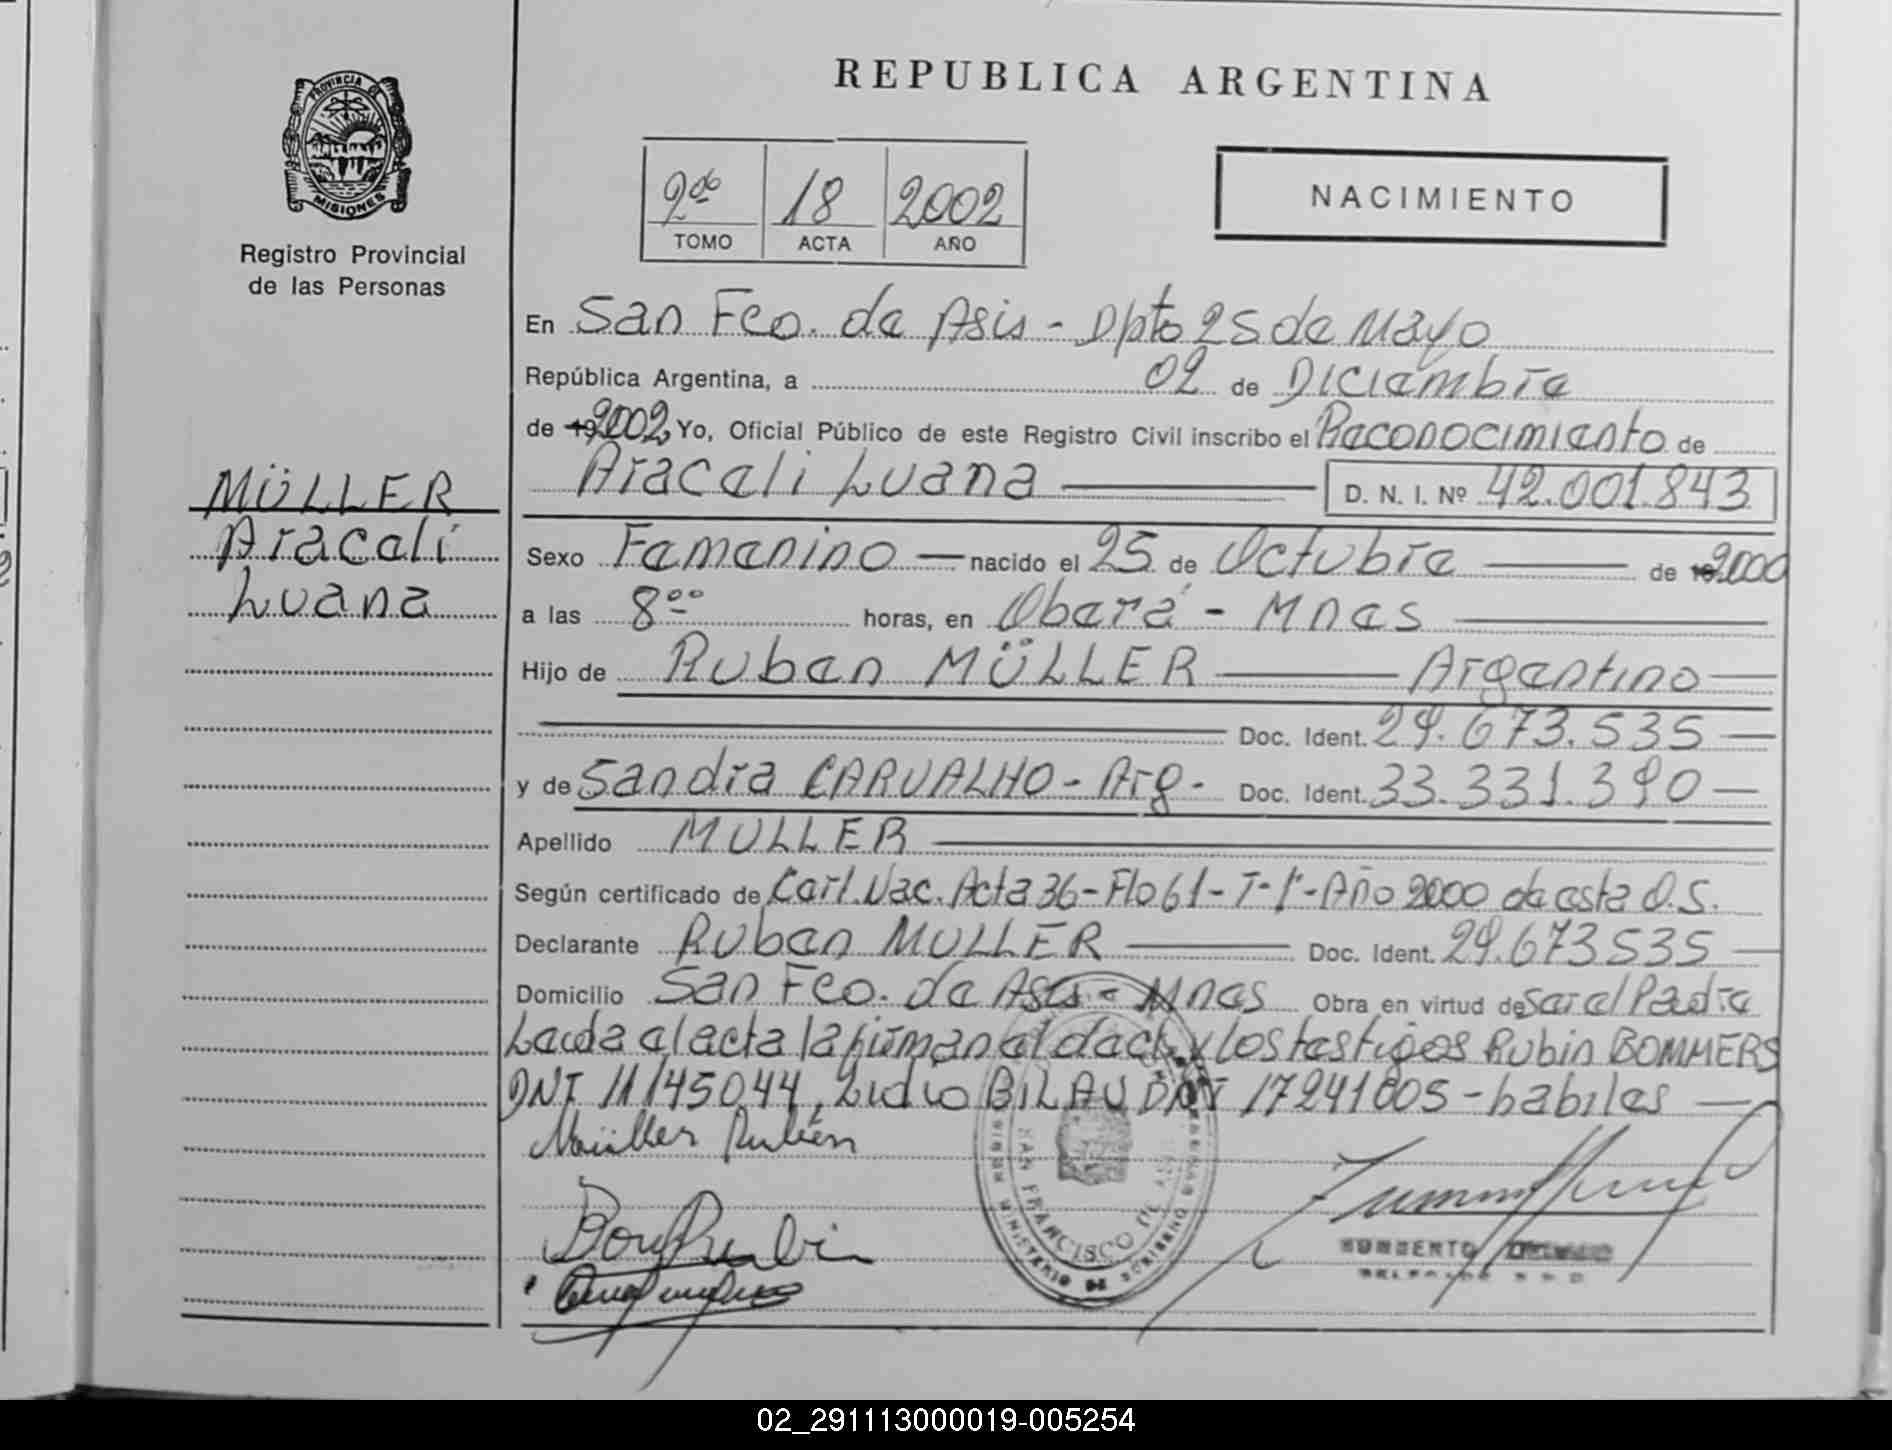 REPUBLICA ARGENTINA
PROVINCIA DE
MISIONES
Registro Provincial
de las Personas
2do 18 2002
TOMO ACTA AÑO
NACIMIENTO
En San Fco. de Asis - Dpto 25 de Mayo
República Argentina, a 02 de Diciembre
de 192002, Yo, Oficial Público de este Registro Civil inscribo el Reconocimiento de
Araceli Luana D. N. I. Nº 42.001.843
MÜLLER
Araceli
Luana
Sexo Femenino nacido el 25 de Octubre de 192000
a las 8 00 horas, en Oberá - Mnes
Hijo de Ruben MÜLLER Argentino
Doc. Ident. 29.673.535
y de Sandra CARVALHO - Arg - Doc. Ident. 33.331.390
Apellido MULLER
Según certificado de Cert. Nac. Acta 36 - Flo 61 - T - 1º - Año 2000 de esta O.S.
Declarante Ruben MULLER Doc. Ident. 29.673535
Domicilio San Fco. de Asis - Mnes Obra en virtud de Ser el Padre
Leida el acta la firman el decl. y los testigos Rubin BOMMERS
DNI 11145044, Lidio BILAU DNI 17241005 - habiles
Müller Rubén
SAN FRANCISCO DE
MINISTERIO DE GOBIERNO
02_291113000019-005254